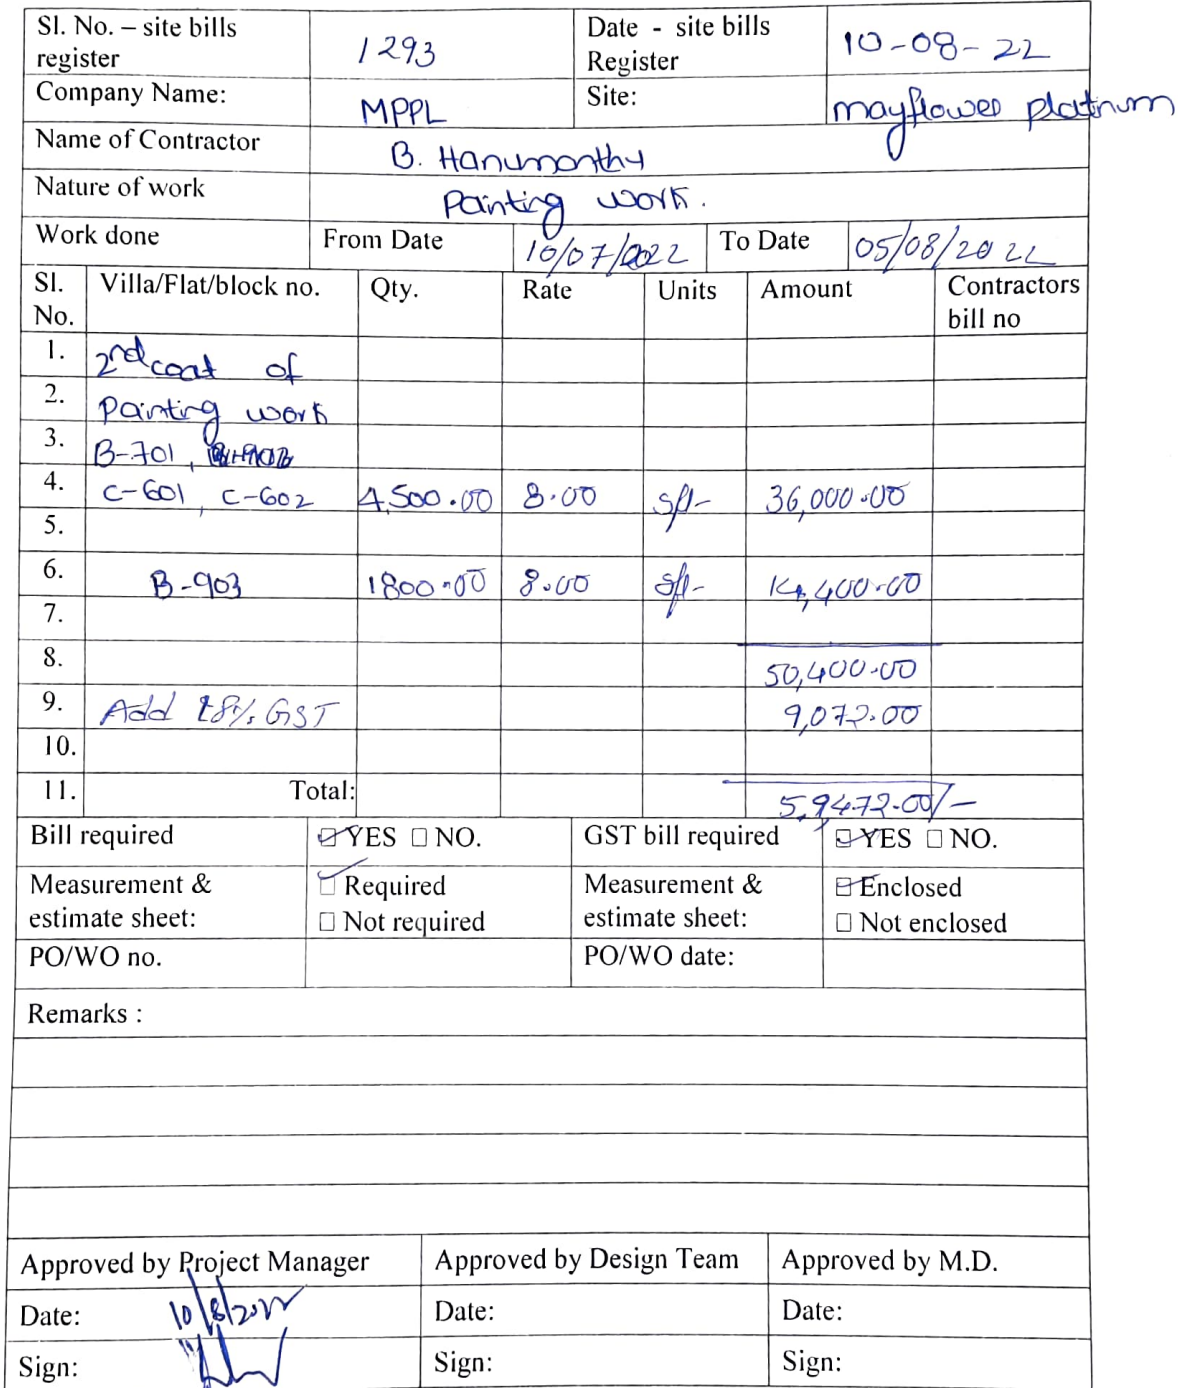 Sl. No. – site bills register 1293 Date - site bills Register 10-08-22
Company Name: MPPL Site: mayflower platinum
Name of Contractor B. Hanumanthu
Nature of work Painting work.
Work done From Date 10/07/2022 To Date 05/08/2022
Sl. No. Villa/Flat/block no. Qty. Rate Units Amount Contractors bill no
1. 2nd coat of
2. Painting work
3. B-701,
4. C-601, C-602 4,500.00 8.00 sft- 36,000.00
5.
6. B-903 1800.00 8.00 sft- 14,400.00
7.
8. 50,400.00
9. Add 18% GST 9,072.00
10.
11. Total: 5,9472.00/-
Bill required ☑ YES ☐ NO. GST bill required ☑ YES ☐ NO.
Measurement & estimate sheet: ☑ Required ☐ Not required Measurement & estimate sheet: ☑ Enclosed ☐ Not enclosed
PO/WO no. PO/WO date:
Remarks :
Approved by Project Manager Approved by Design Team Approved by M.D.
Date: 10/8/2022 Date: Date:
Sign: Sign: Sign: